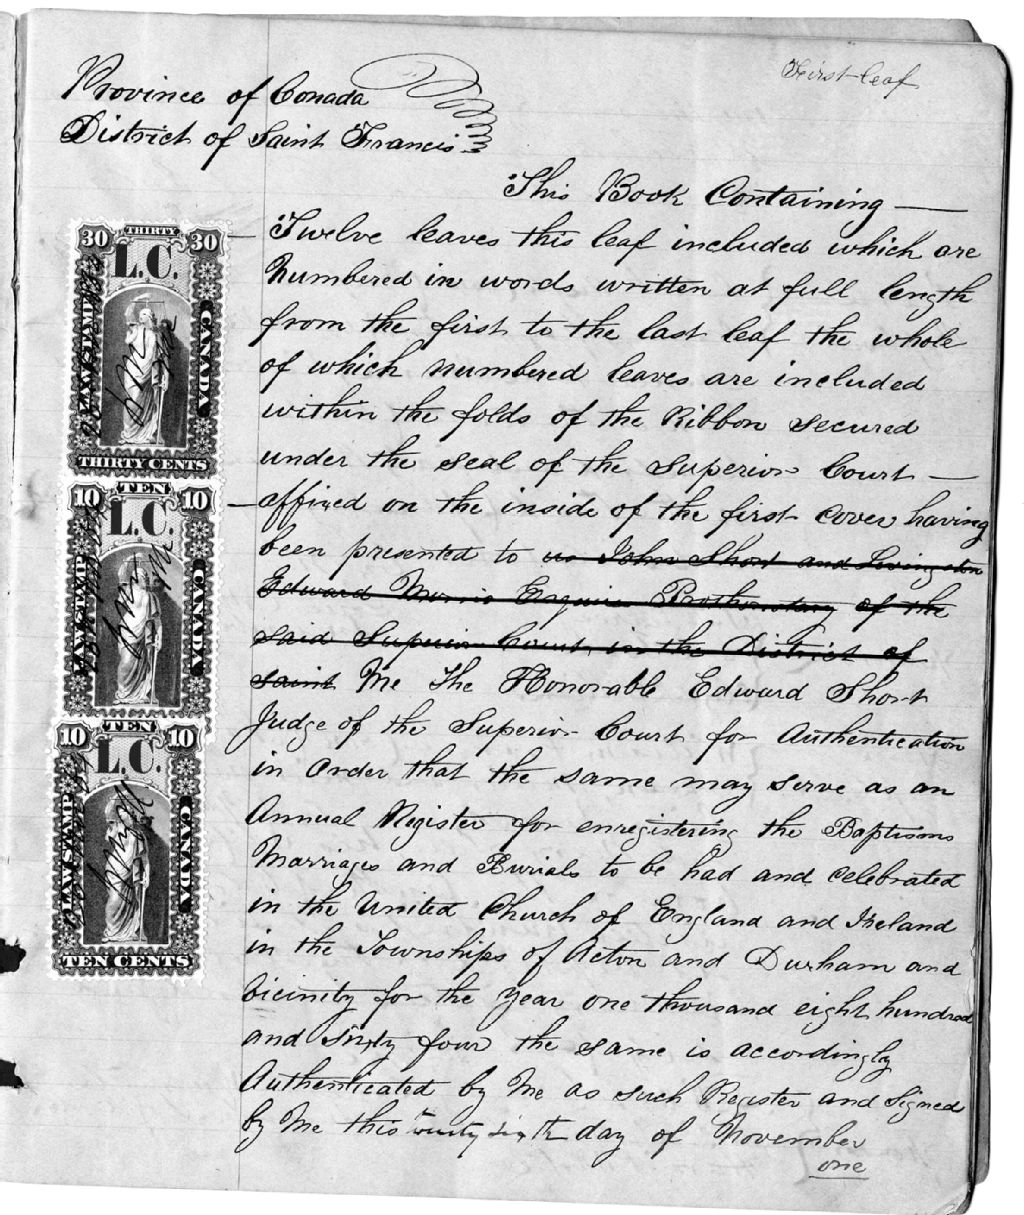 First leaf
Province of Canada
District of Saint Francis
This Book Containing —
Twelve leaves this leaf included which are
Numbered in words written at full length
from the first to the last leaf the whole
of which numbered leaves are included
within the folds of the Ribbon secured
under the seal of the Superior Court —
affixed on the inside of the first cover having
been presented to us John Short and Livingston
Edward Morris Esquires Prothonotary of the
said Superior Court, in the District of
Saint Me The Honorable Edward Short
Judge of the Superior Court for Authentication
in Order that the same may serve as an
Annual Register for enregistering the Baptisms
Marriages and Burials to be had and celebrated
in the United Church of England and Ireland
in the Townships of Acton and Durham and
vicinity for the year one thousand eight hundred
and sixty four the same is accordingly
Authenticated by Me as such Register and Signed
by Me this twenty sixth day of November
one
30 THIRTY 30
L.C.
LAW STAMP
CANADA
THIRTY CENTS
10 TEN 10
L.C.
LAW STAMP
CANADA
10 TEN 10
L.C.
LAW STAMP
CANADA
TEN CENTS